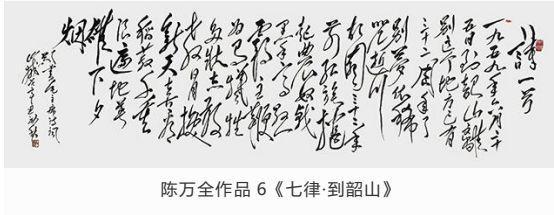 一九五九年六月二十
五日到韶山离
别这个地方已有
三十二周年了
别梦依稀
咒逝川
故园三十二年
前红旗卷
起农奴戟
黑手高悬
霸主鞭
为有牺牲
多壮志敢
教日月换
新天喜看
稻菽千重
浪遍地英
雄下夕
烟
陈万全作品 6《七律·到韶山》